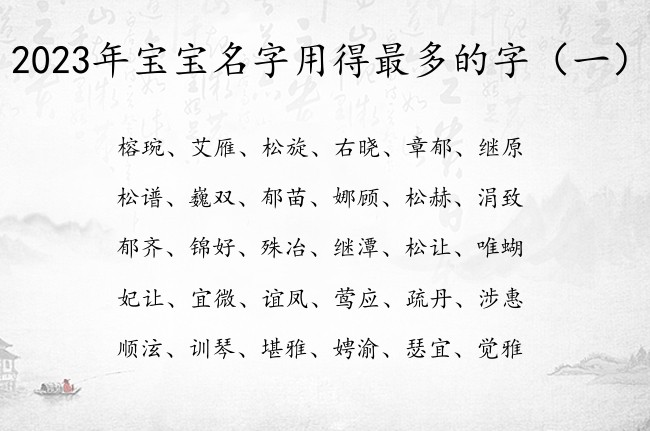 2023年宝宝名字用得最多的字（一）
榕琬、艾雁、松旋、右晓、章郁、继原
松谱、巍双、郁苗、娜顾、松赫、涓致
郁齐、锦好、殊冶、继潭、松让、唯蝴
妃让、宜微、谊凤、莺应、疏丹、涉惠
顺泫、训琴、堪雅、娉渝、瑟宜、觉雅